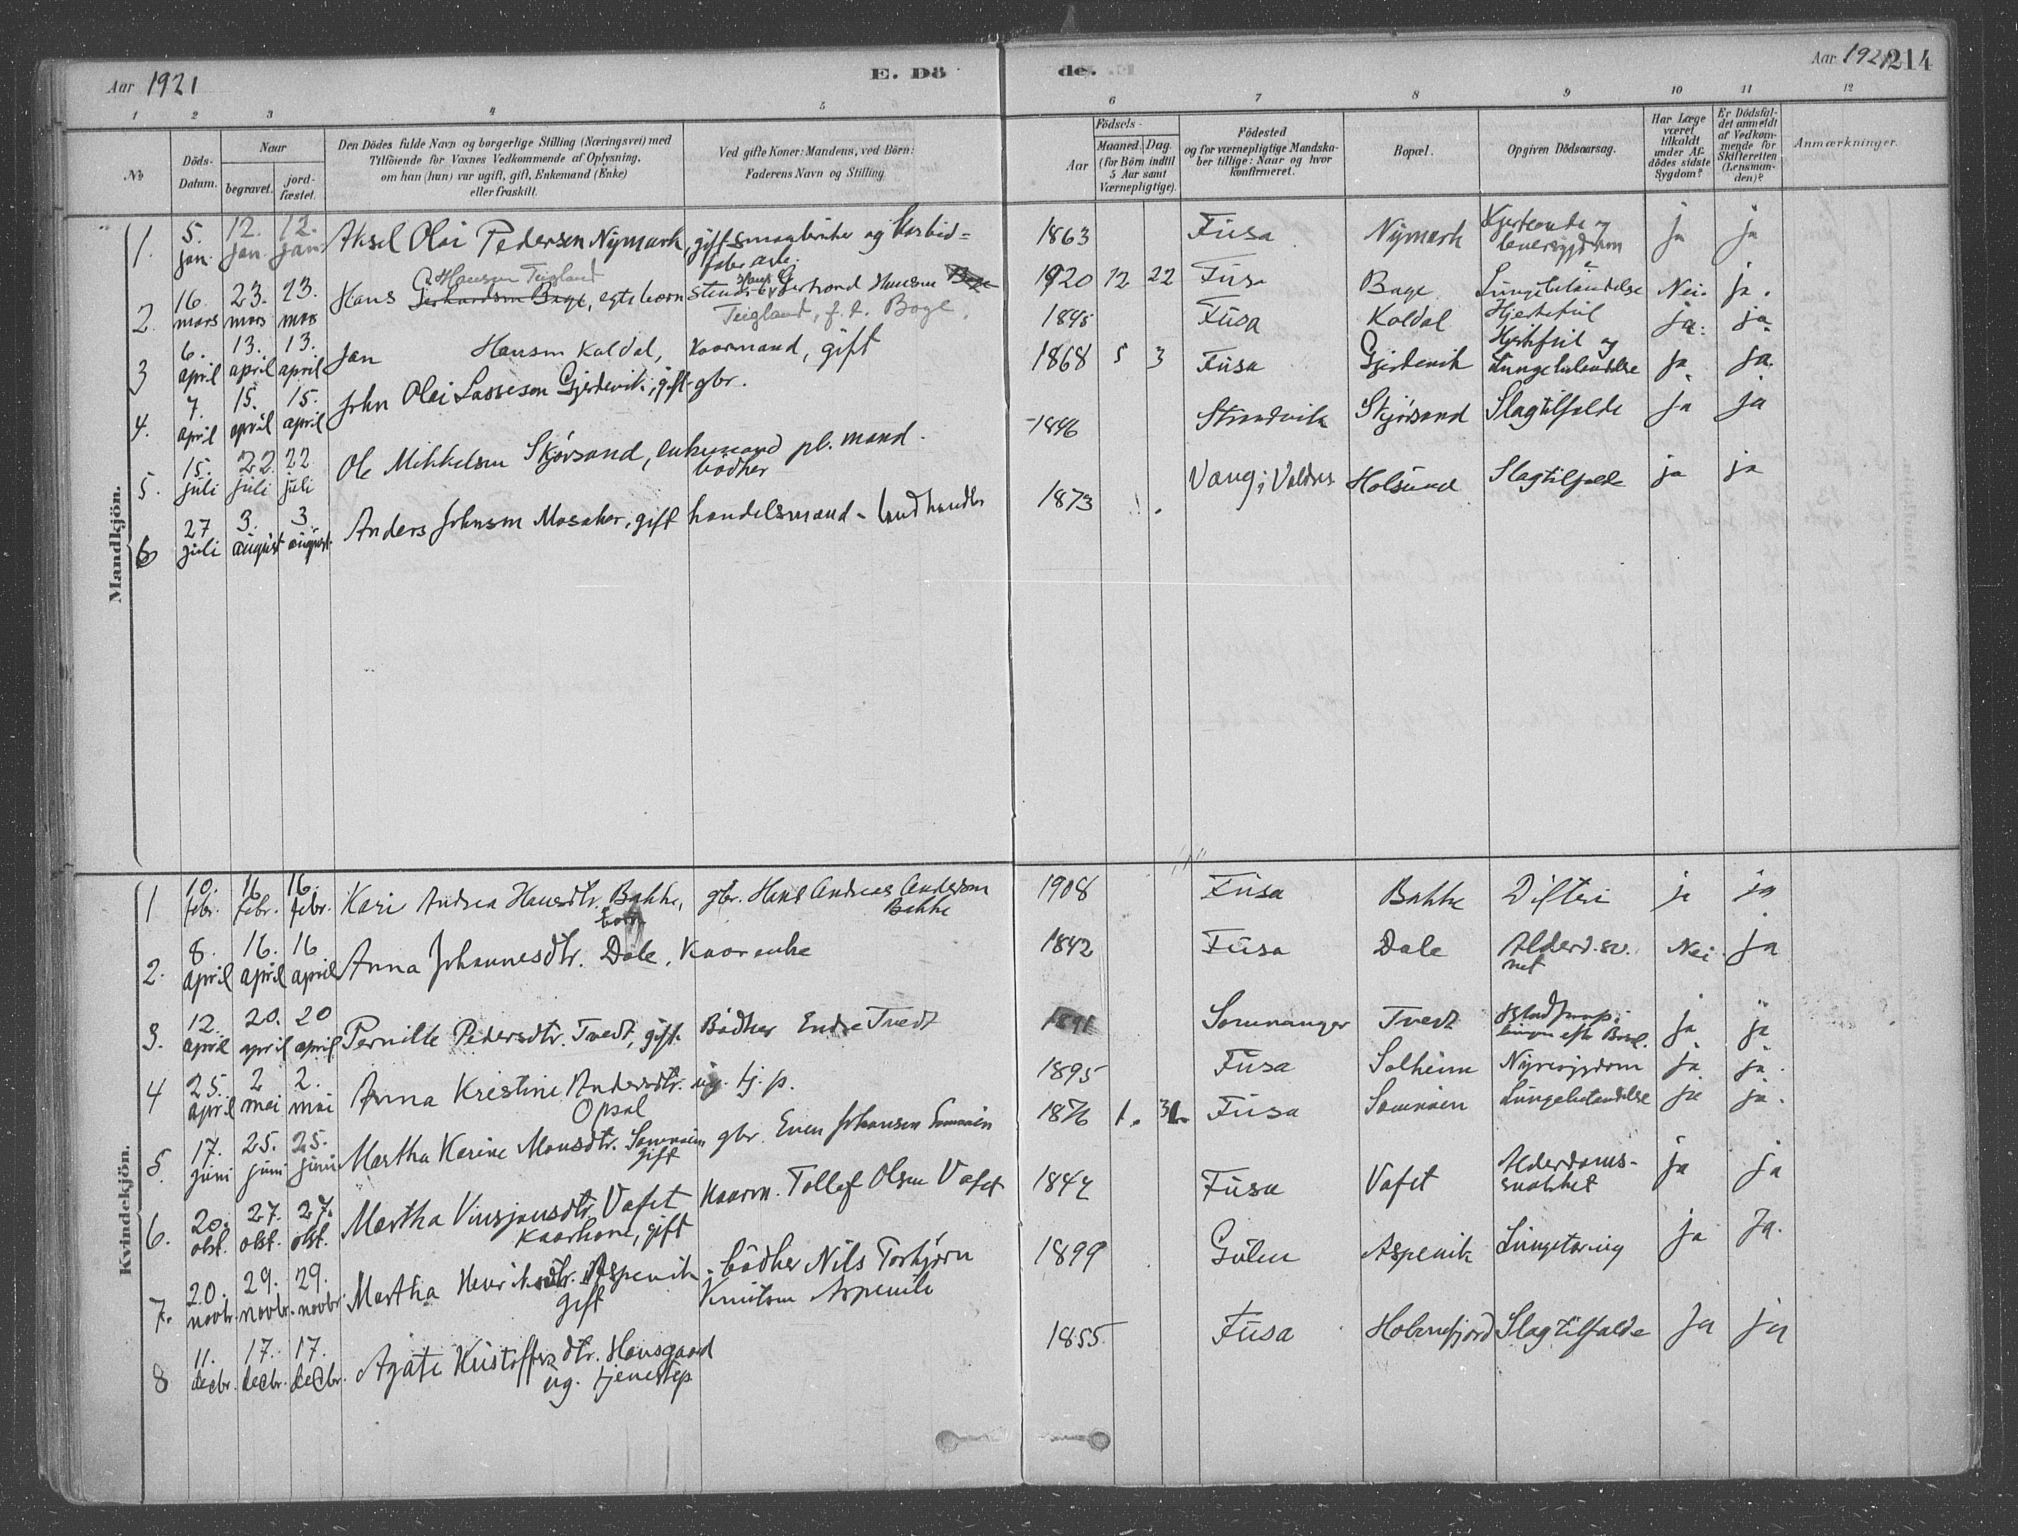 Aar 1921
E. Dö
de.
Aar 1921 214
1 2 3 4 5 6 7 8 9 10 11 12
No
Döds-Datum.
Naar
begravet.
jord-fæstet.
Den Dödes fulde Navn og borgerlige Stilling (Næringsvei) med
Tilföiende for Voxnes Vedkommende af Oplysning,
om han (hun) var ugift, gift, Enkemand (Enke)
eller fraskilt.
Ved gifte Koner: Mandens, ved Börn:
Faderens Navn og Stilling.
Födsels-
Aar
Maaned. Dag.
(for Börn indtil
5 Aar samt
Værnepligtige).
Födested
og for værnepligtige Mandska-
ber tillige: Naar og hvor
konfirmeret.
Bopæl.
Opgiven Dödsaarsag.
Har Læge
været
tilkaldt
under Af-
dödes sidste
Sygdom?
Er Dödsfal-
det anmeldt
af Vedkom-
mende for
Skifteretten
(Lensman-
den)?
Anmærkninger.
Mandkjön.
1. 5. jan. 12. jan. 12. jan. Aksel Olai Pedersen Nymark, gift smaabruker og 1863 Fusa Nymark Hjerteonde og leversygdom ja ja
2. 16. mars 23. mars 23. mars Hans Gerhardsen Bage, egte barn G. Hansen Teigland Hansen Bage Teigland, f. t. Bage. 1920 12 22 Fusa Bage Lungebetændelse Nei. ja.
3 6. april 13. april 13. april Jan Hansen Koldal, Kaarmand, gift 1845 Fusa Koldal Hjertefeil ja. ja.
4. 7. april 15. april 15. april John Olai Lassesen Gjerdevik, gift gbr. 1868 5 3 Fusa Gjerdevik Hjertefeil og Lungebetændelse ja ja.
5. 15. juli 22. juli 22 juli Ole Mikkelsen Skjørsand, enkemand pl. mand. bødker 1846 Strandvik Skjørsand Slagtilfælde ja ja
6 27 juli 3. august 3. august Anders Johnsen Mosaker, gift handelsmand - landhandler 1873 Vang i Valdres Holsund Slagtilfælde ja ja
Kvindekjön.
1 10. febr. 16 febr. 16. febr. Kari Andrea Hansdtr. Bakke, barn gbr. Hans Andreas Anderson Bakke 1908 Fusa Bakke Difteri ja ja
2. 8. april 16. april 16 april Anna Johannesdtr. Dale, Kaarenke 1842 Fusa Dale Nei ja
3. 12. april 20. april 20 april Pernille Pedersdtr. Tvedt, gift. Bødker Endre Tvedt 1891 Samnanger Tvedt ja ja
4 25. april 2 mai 2. mai Anna Kristine Andersdtr. Opsal ug. tj. p. 1895 Fusa Solheim Nyresygdom ja ja.
5. 17. juni 25. juni 25. juni Martha Karine Monsdtr. gift gbr. Even Johansen 1876 1. 31. Fusa Lungebetændelse ja ja.
6. 20. okt. 27. okt. 27. okt. Martha Vinsjansdtr. Vafet Kaarkone, gift Kaarm. Tollef Olsen Vafet 1844 Fusa Vafet Alderdoms- ja ja
7. 20. novbr. 29. novbr. 29. novbr. Martha Henriksdtr. Aspevik gift bødker Nils Torbjørn Knutsen Aspevik 1899 Gulen Aspevik Lungetæring ja Ja.
8 11. decbr. 17. decbr. 17. decbr. Agate Kristoffersdtr. Hansgaard ug. tjenestep 1855 Fusa Holmefjord Slagtilfælde Ja ja